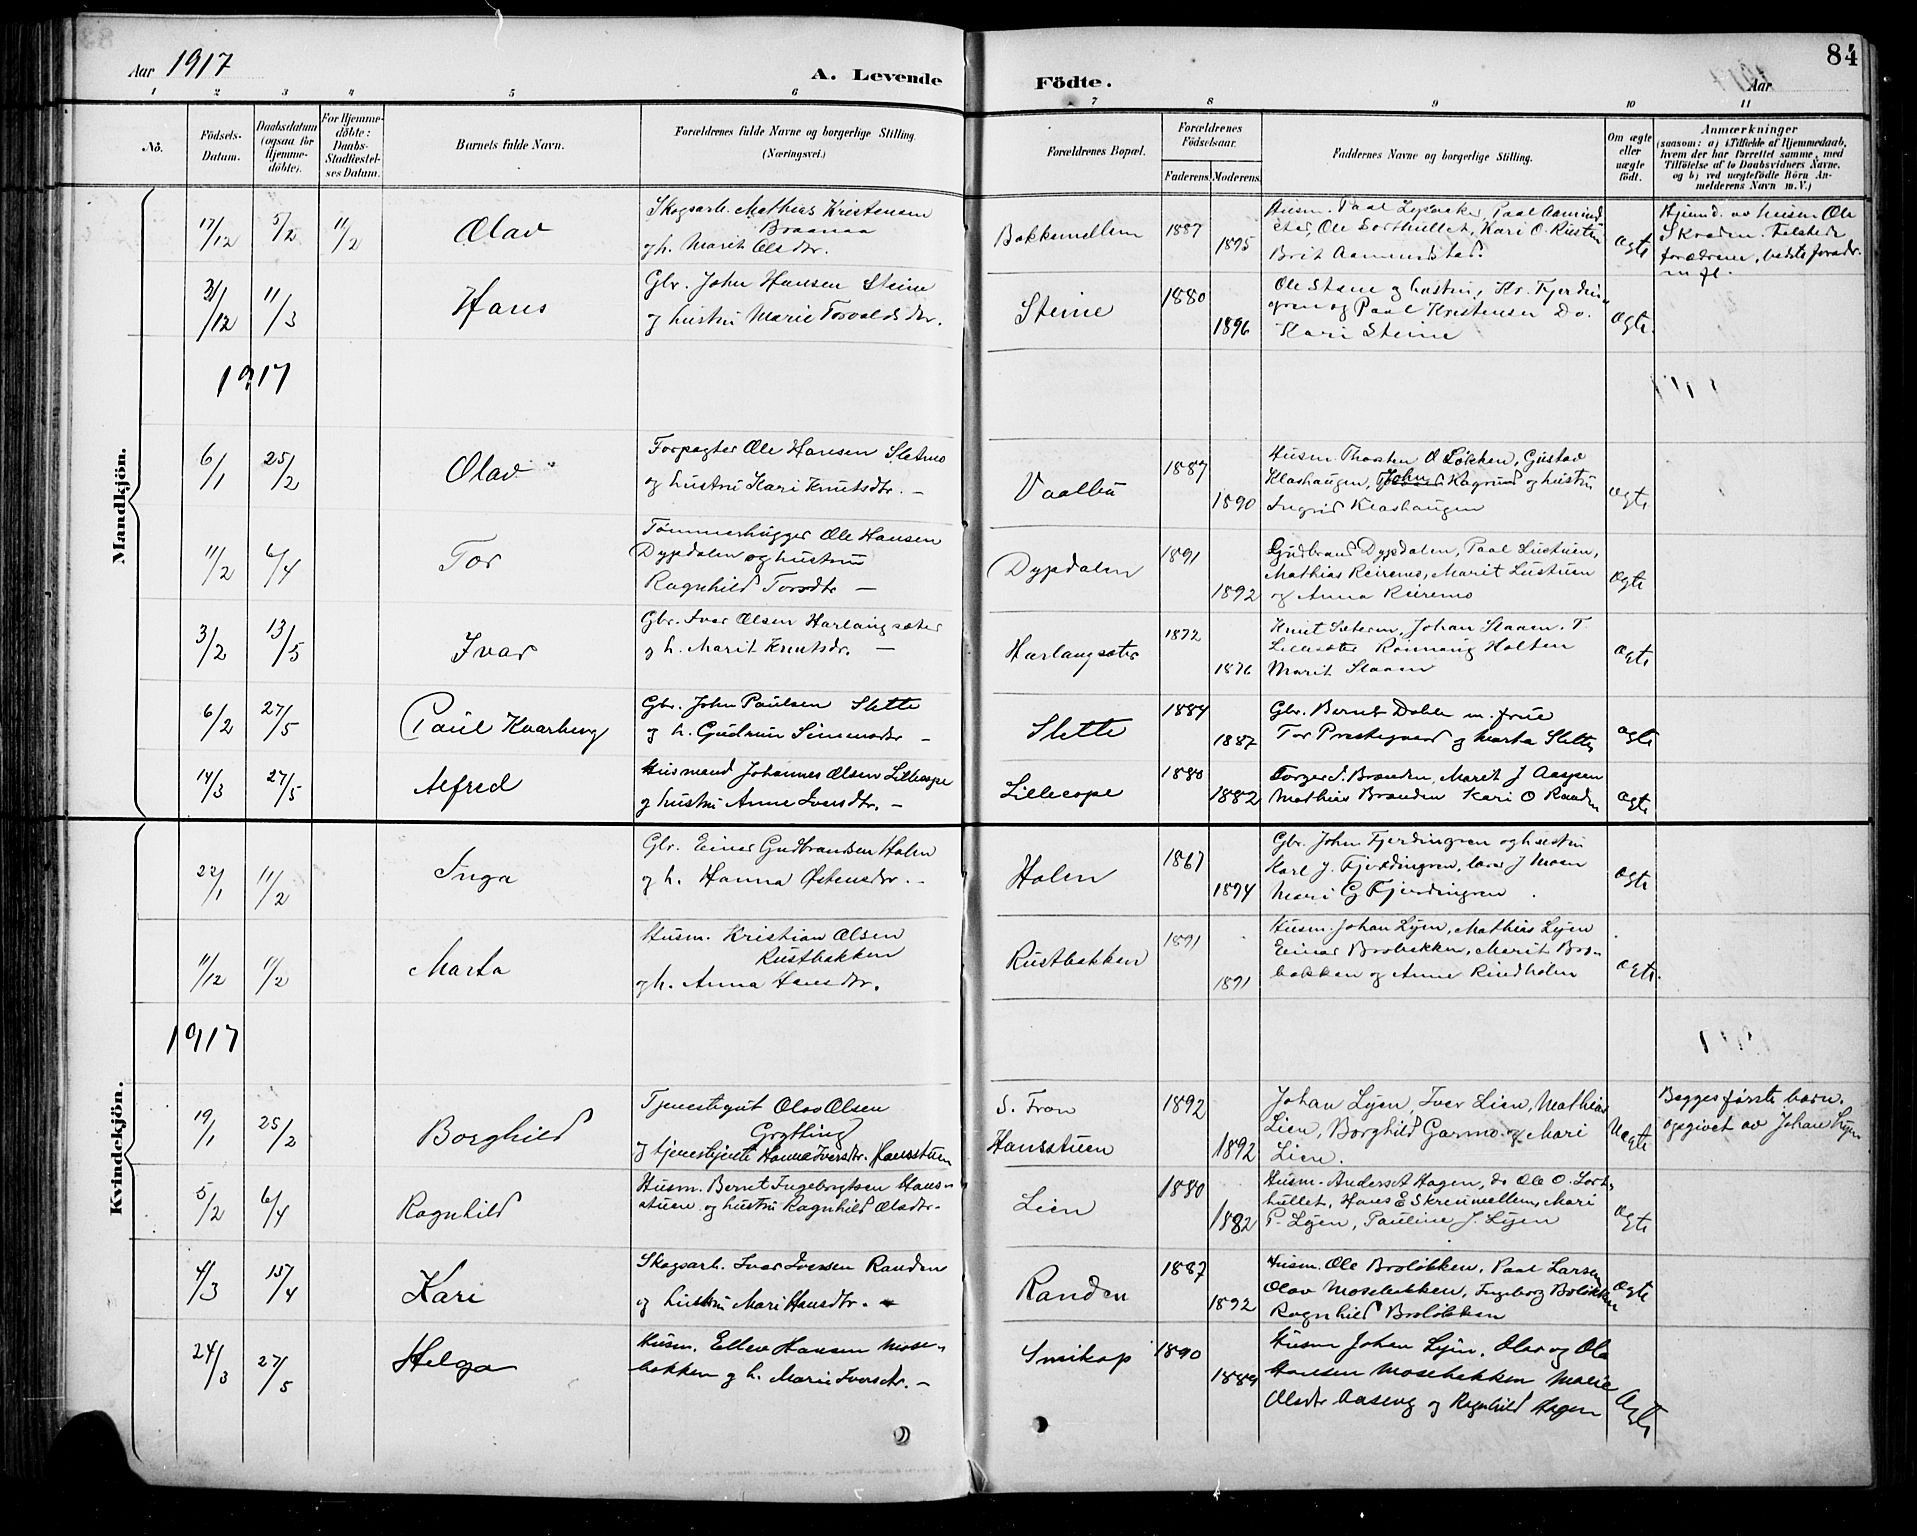 Aar 1917
A. Levende
Födte.
Aar
84
1 2 3 4 5 6 7 8 9 10 11
No.
Födsels-
Datum.
Daabsdatum
(ogsaa for
Hjemme-
döbte).
For Hjemme-
döbte:
Daabs-
Stadfæstel-
ses Datum.
Barnets fulde Navn.
Forældrenes fulde Navne og borgerlige Stilling.
(Næringsvei.)
Forældrenes Bopæl.
Forældrenes
Födselsaar.
Faderens. Moderens.
Faddernes Navne og borgerlige Stilling.
Om ægte
eller
uægte
födt.
Anmærkninger
(saasom: a) i Tilfælde af Hjemmedaab,
hvem der har forrettet samme, med
Tilföielse af to Daabsvidners Navne,
og b) ved uægtefödte Börn An-
melderens Navn m. V.)
Mandkjön.
17/12 5/2 11/2 Olav
Skogsarb. Mathias Kristensen
Braanaa
og h. Marit Olsdtr.
Bakkemellem 1887 1895
Husm. Paal Lysaker, Paal Aamund
stad, Ole Lorthullet, Kari O.
Brit Aamundstad.
Ægte
Hjemd. av husm Ole
Skraden. Tilstede
forældrene, bedste forældr.
m fl.
31/12 11/3 Hans
Gbr. John Hansen Steine
og hustru Marie Torvaldsdtr.
Steine 1880 1896
Ole Steine og hustru, Kr. Fjerdin
gren og Paal Kristensen Do.
Kari Steine
Ægte.
1917
6/1 25/2 Olav
Forpagter Ole Hansen Sletmo
og hustru Kari Knutsdtr. —
Vaalbu 1887 1890
Husm. Thorsten O Løkken, Gustav
Klashaugen, John Kagrud og hustru
Ingrid Klashaugen
Ægte
11/2 6/4 Tor
Tømmerhugger Ole Hansen
Dypdalen og hustru
Ragnhild Torsdtr —
Dypdalen 1891 1892
Gudbrand Dypdalen, Paal Lustuen,
Mathias Reiremo, Marit Lustuen
og Anna Reiremo
Ægte
3/2 13/5 Ivar
Gbr. Iver Olsen Harlaugsæter
og h. Marit Knutsdr. —
Harlaugsæter 1872 1876
Knut Sæterm, Johan Staaen. T.
Lillesæter Rønnaug Holten
Marit Staaen
Ægte
6/2 27/5 Paul Kvarberg
Gbr. John Paulsen Slette
og h. Gudrun Simensdtr —
Slette 1884 1887
Gbr. Bernt Dahle m. frue
Tor Prestegaard og Marta Slette
Ægte
14/3 27/5 Alfred
Husmand Johannes Olsen Lilleespe
og hustru Anne Iversdtr. —
Lilleespe 1880 1882
Torger S. Brænden, Marit J Aaspen
Mathias Brænden Kari O Raaden
Ægte
Kvindekjön.
22/1 11/2 Inga
Gbr. Einer Gudbrandsen Holen
og h. Hanna Østensdtr. —
Holen 1867 1874
Gbr. John Fjerdingren og hustru
Karl J. Fjerdingren, Lars J Moen
Mari G Fjerdingren
Ægte
11/12 11/2 Marta
Husm. Kristian Olsen
Rustbakken
og h. Anna Hansdtr.
Rustbakken 1891 1891
Husm. Johan Lyen, Mathias Lyen
Einar Brobakken, Marit Bro-
bakken og Anne Rindholen
Ægte.
1917
19/1 25/2 Borghild
Tjenestegut Olav Olsen
Grytting
og tjenestejente Hanna Iversdtr. Hansstuen
S. Fron
Hansstuen 1892 1892
Johan Lyen, Iver Lien, Mathias
Lien, Borghild Garmo og Mari
Lien.
Uægte
Begges første barn.
opgivet av Johan Lyen
5/2 6/4 Ragnhild
Husm. Bernt Ingebrigtsen Hans-
stuen og hustru Ragnhild Olsdtr.
Lien 1880 1882
Husm. Anders Hagen, do Ole O. Lort-
hullet, Hans E Skreumellem, Mari
P. Lyen, Pauline J. Lyen
Ægte
4/3 15/4 Kari
Skogsarb. Ivar Iversen Randen
og hustru Mari Hansdtr. —
Randen 1887 1892
Husm. Ole Broløkken, Paal Larsen
Olav Mosebakken, Ingeborg Broløkken
Ragnhild Broløkken
Ægte
24/3 27/5 Helga
Husm. Ellev Hansen Mose-
bakken og h. Marie Iversdtr. —
Smikop 1890 1889
Husm Johan Lyen, Olav og Ola
Hansen Mosebakken Marie
Olsdtr Aaseng og Ragnhild Hagen
Ægte